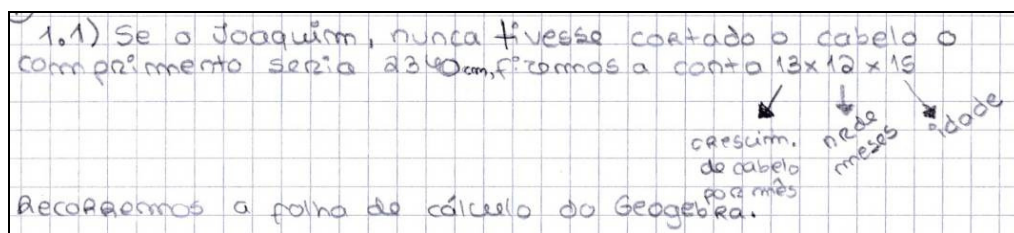 1.1) Se o Joaquim, nunca tivesse cortado o cabelo o
comprimento seria 2340cm, fizemos a conta 13x12x15
crescim.
de cabelo
por mês
nº de
meses
idade
Recorremos a folha de cálculo do Geogebra.